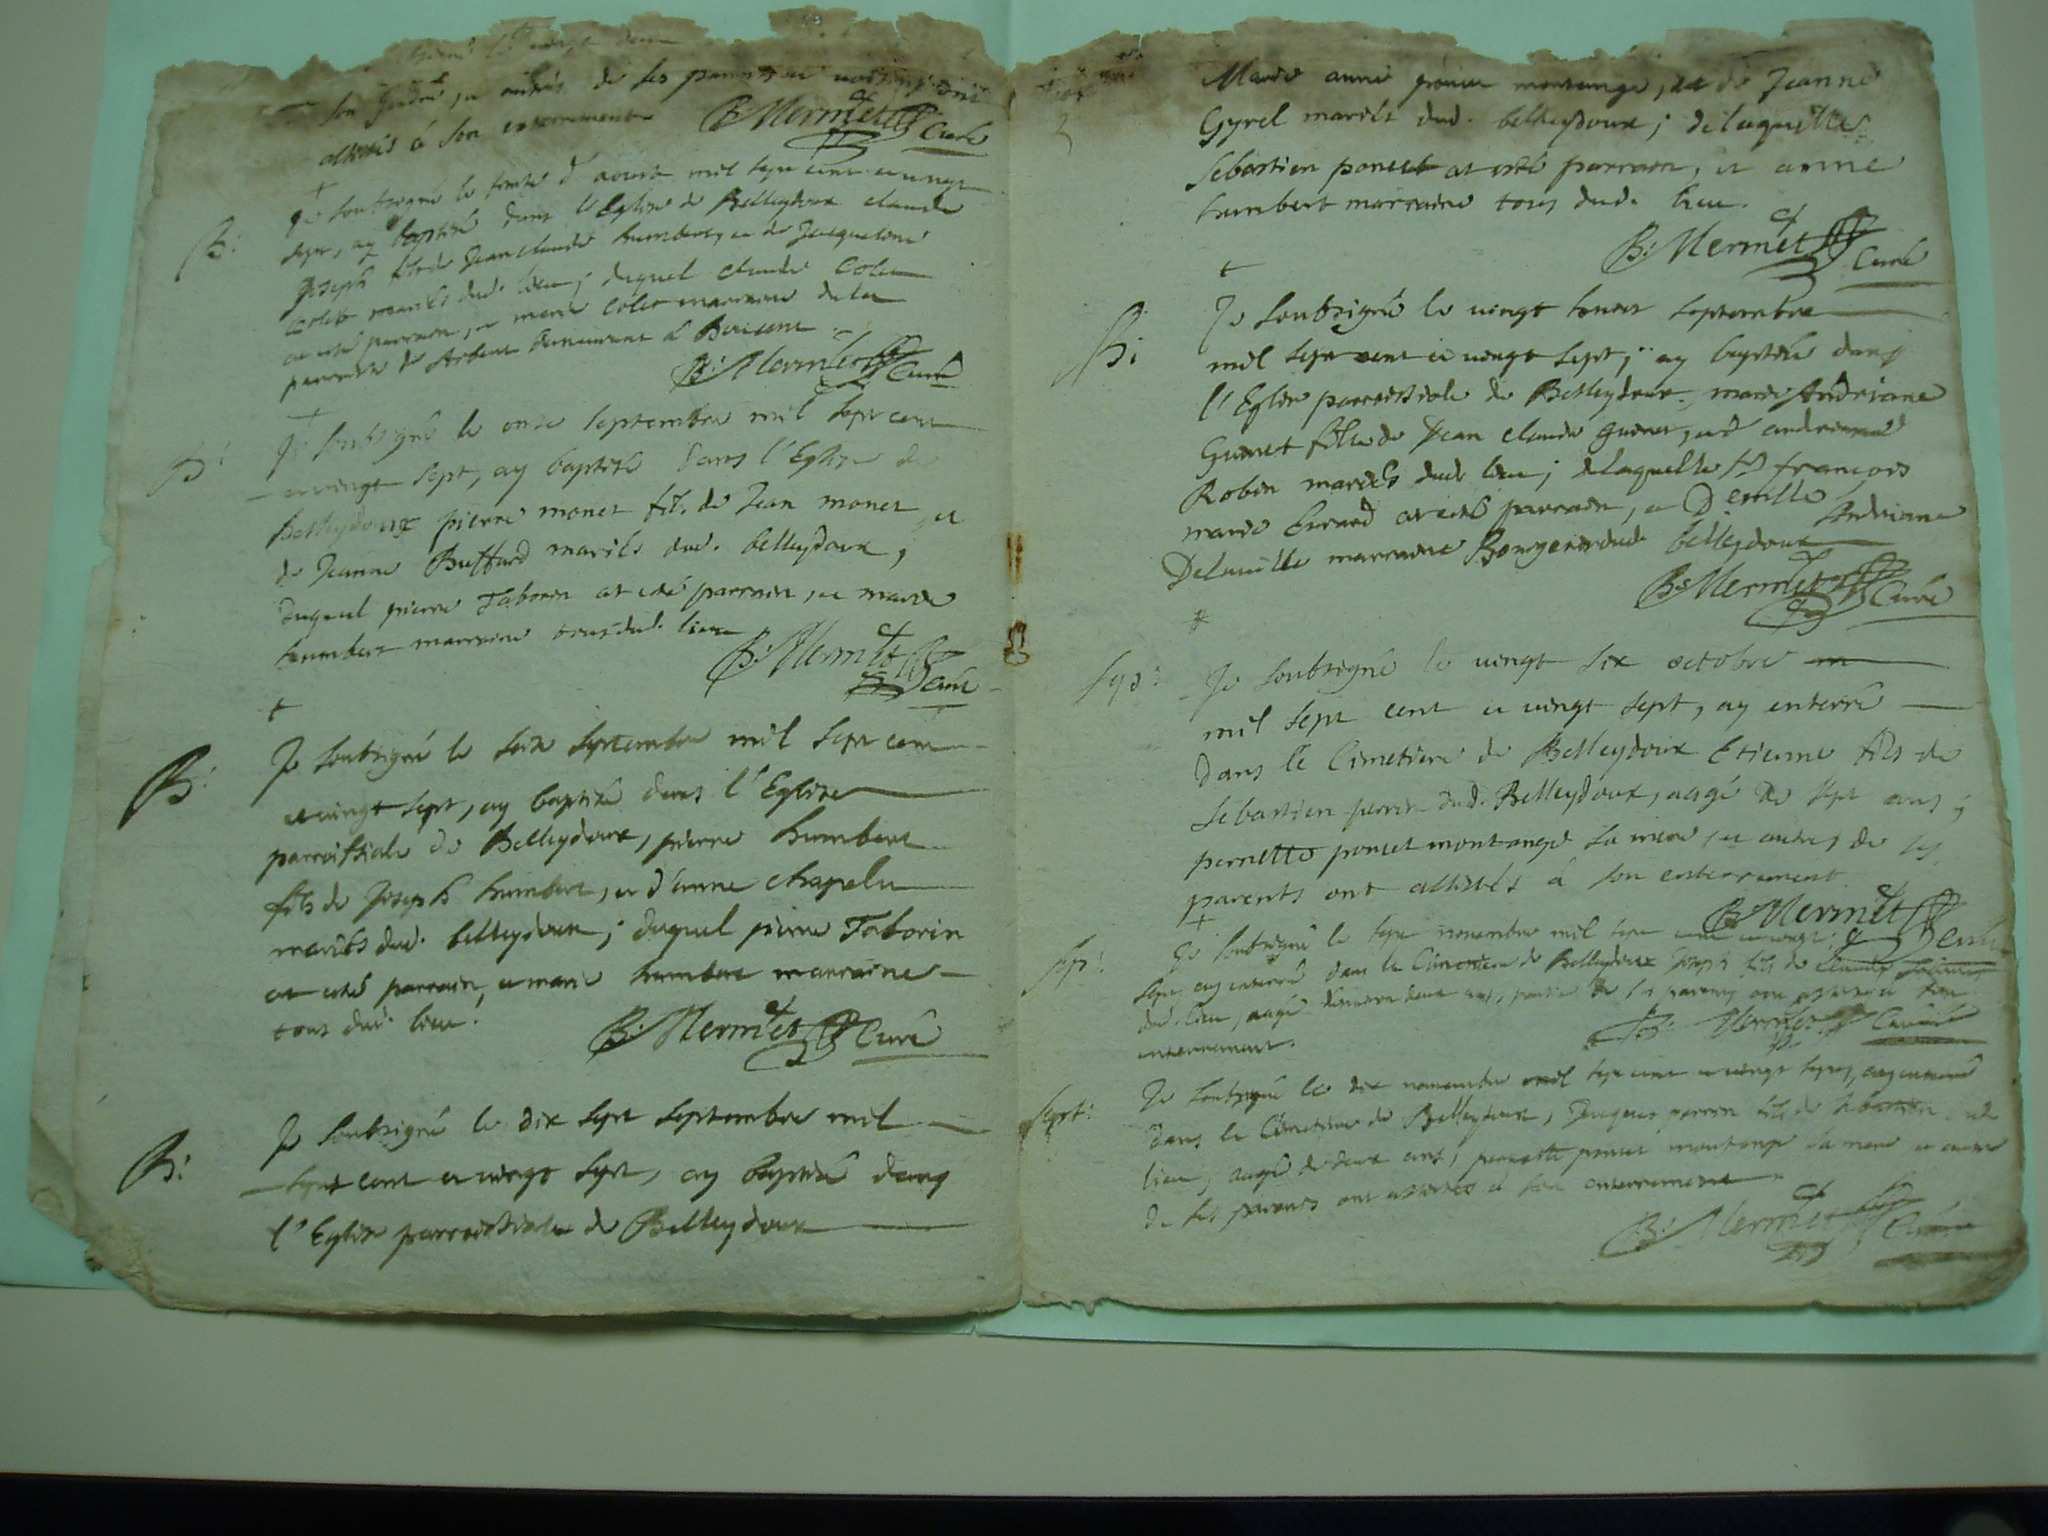 son gendre, et autres de ses parents et voisins ont
assistés à son enterrement B: Mermet Curé
B:
Je soubsigné le trente d'aoust mil sept cent et vingt
sept, ay baptisé dans l'Eglise de Belleydoux claude
Joseph fils de Jean claude humbert, et de Jacqueline
colet mariés dud. lieu; duquel claude Colet
at esté parrain, et marie Colet marraine de la
parroisse de Arbent demeurant à
B: Mermet Curé
B:
Je soubsigné le onze septembre mil sept cent
et vingt sept, ay baptisé dans l'Eglise de
Belleydoux pierre monet fils de Jean monet et
de Jeanne Buffard mariés dud. belleydoux;
duquel pierre Taborin at esté parrain, et marie
humbert marraine tous dud. lieu
B: Mermet Curé
B:
Je soubsigné le seize septembre mil sept cent
et vingt sept, ay baptisé dans l'Eglise
parroissiale de Belleydoux, pierre humbert
fils de Joseph humbert, et d'anne chapelu
mariés dud. belleydoux; duquel pierre Taborin
at esté parrain, et marie humbert marraine
tous dud. lieu.
B: Mermet Curé
B:
Je soubsigné le dix sept septembre mil
sept cent et vingt sept, ay baptisé dans
l'Eglise parroissiale de Belleydoux
Marie anne poncet montange, et de Jeanne
Gyrel mariés dud. belleydoux; de laquelle
Sebastien poncet at esté parrain, et anne
humbert marraine tous dud. lieu.
B: Mermet Curé
B:
Je soubsigné le vingt septembre
mil sept cent et vingt sept; ay baptisé dans
l'Eglise parroissiale de Belleydoux, marie Andriane
Guenet fille de Jean claude guenet, et d'andrienne
Robin mariés dud. lieu; de laquelle Sr françois
marie Evrard at esté parrain, et Delle Andriane
Delaville marraine Bourgeois dud. belleydoux
B: Mermet Curé
Sep:
Je soubsigné le vingt six octobre
mil sept cent et vingt sept, ay enterré
dans le Cimetiere de Belleydoux Etienne fils de
Sebastien perrin dud. Belleydoux, aagé de sept ans;
pernette poncet montange sa mere, et autres de ses
parents ont assistés à son enterrement
B: Mermet Curé
Sep:
Je soubsigné le sept novembre mil sept cent et vingt
sept, ay enterré dans le Cimetiere de Belleydoux Joseph fils de Claude
dud. lieu, aagé d'environ deux ans, partie de ses parents ont assisté à son
enterrement.
B: Mermet Curé
Sept:
Je soubsigné le dix novembre mil sept cent et vingt sept, ay enterré
dans le Cimetiere de Belleydoux, Jacques perrin fils de Sebastien dud.
lieu, aagé de deux ans; pernette poncet montange sa mere et autres
de ses parents ont assistés à son enterrement.
B: Mermet Curé